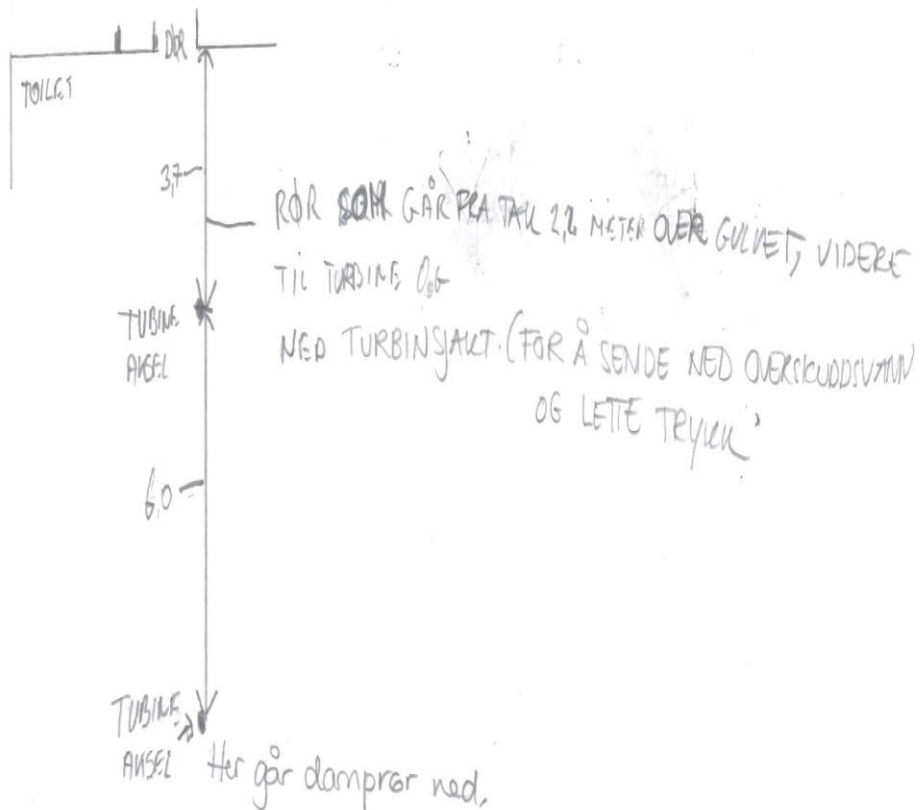 DØR
TOILET
3,7
RØR SOM GÅR FRA TAK 2,2 METER OVER GULVET, VIDERE
TIL TURBINE OG
NED TURBINSJAKT. (FOR Å SENDE NED OVERSKUDDSVANN
OG LETTE TRYKK
TUBINE
AKSEL
6,0
TUBINE
AKSEL
Her går damprør ned,